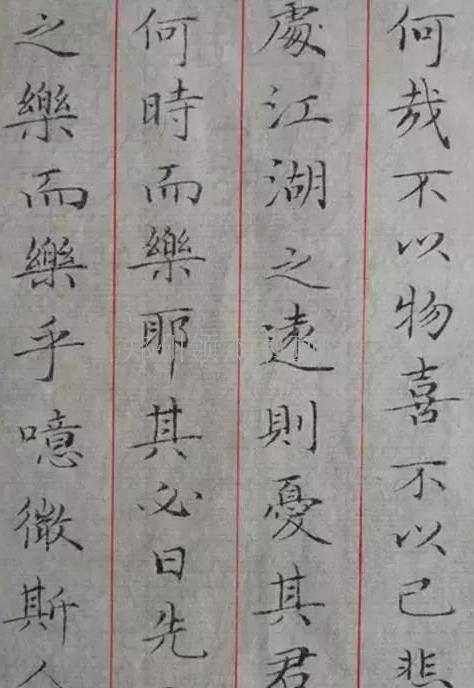 何哉不以物喜不以己悲
處江湖之遠則憂其君
何時而樂耶其必曰先
之樂而樂乎噫微斯人